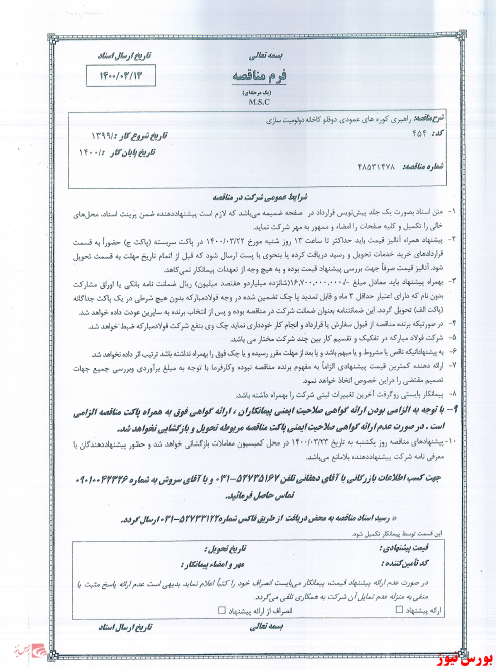 بسمه تعالی
تاریخ ارسال اسناد
۱۴۰۰/۰۳/۱۳
فرم مناقصه
(یک مرحله‌ای)
M.S.C
شرح مناقصه: راهبری کوره های عمودی دوقلو کاخانه دولومیت سازی
کد: ۴۵۴
تاریخ شروع کار: /۱۳۹۹
تاریخ پایان کار: /۱۴۰۰
شماره مناقصه: ۴۸۵۳۱۴۷۸
شرایط عمومی شرکت در مناقصه
۱- متن اسناد بصورت یک جلد پیش‌نویس قرارداد در صفحه ضمیمه می‌باشد که لازم است پیشنهاددهنده ضمن پرینت اسناد، محل‌های
خالی را تکمیل و کلیه صفحات را امضاء و ممهور به مهر شرکت نماید.
۲- پیشنهاد همراه آنالیز قیمت باید حداکثر تا ساعت ۱۳ روز شنبه مورخ ۱۴۰۰/۰۳/۲۲ در پاکت سربسته (پاکت ج) حضوراً به قسمت
قراردادهای خرید خدمات تحویل و رسید دریافت کرده یا بنحوی با پست ارسال شود که قبل از اتمام تاریخ مهلت به قسمت تحویل
شود. آنالیز قیمت صرفاً جهت بررسی پیشنهاد قیمت بوده و به هیچ وجه از تعهدات پیمانکار نمی‌کاهد.
۳- بهمراه پیشنهاد باید معادل مبلغ -/۱۶,۷۰۰,۰۰۰,۰۰۰(شانزده میلیاردو هفتصد میلیون) ریال ضمانت نامه بانکی یا اوراق مشارکت
بدون نام که دارای اعتبار حداقل ۳ ماه و قابل تمدید یا چک تضمین شده در وجه فولادمبارکه بدون هیچ شرطی در یک پاکت جداگانه
(پاکت الف) تحویل گردد. این ضمانتنامه بعنوان ضمانت شرکت در مناقصه بوده و پس از انتخاب برنده به سایرین عودت داده خواهد شد.
۴- در صورتیکه برنده مناقصه از قبول سفارش یا قرارداد و انجام کار خودداری نماید چک وی بنفع شرکت فولادمبارکه ضبط خواهد شد.
۵- شرکت فولاد مبارکه در تفکیک و تقسیم کار بین چند شرکت مختار می باشد.
۶- به پیشنهاداتیکه ناقص یا مشروط و یا مبهم باشد و یا بعد از مهلت مقرر رسیده و یا چک فوق را بهمراه نداشته باشد ترتیب اثر داده نخواهد شد.
۷- ارائه دهنده کمترین قیمت پیشنهادی الزاماً به مفهوم برنده مناقصه نبوده وکارفرما با توجه به مبلغ برآوردی وبررسی جمیع جهات
تصمیم مقتضی را دراین خصوص اتخاذ خواهد نمود.
۸- پیمانکار بایستی روگرفت آخرین تغییرات ثبتی شرکت را بهمراه داشته باشد.
۹- با توجه به الزامی بودن ارائه گواهی صلاحیت ایمنی پیمانکاران ، ارائه گواهی فوق به همراه پاکت مناقصه الزامی
است . در صورت عدم ارائه گواهی صلاحیت ایمنی پاکت مناقصه مربوطه تحویل و بازگشایی نخواهد شد.
۱۰- پیشنهادهای مناقصه روز یکشنبه به تاریخ ۱۴۰۰/۰۳/۲۳ در محل کمیسیون معاملات بازگشائی خواهد شد و حضور پیشنهاددهندگان با
معرفی نامه شرکت پیشنهاددهنده بلامانع می‌باشد.
جهت کسب اطلاعات بازرگانی با آقای دهقانی تلفن ۵۲۷۳۵۱۶۷-۰۳۱ و یا آقای سروش به شماره ۰۹۰۱۰۰۴۲۳۳۶
تماس حاصل فرمائید.
* رسید اسناد مناقصه به محض دریافت از طریق فاکس شماره ۵۲۷۳۳۱۲۲-۰۳۱ ارسال گردد.
این قسمت توسط پیمانکار تکمیل شود.
قیمت پیشنهادی :
تاریخ تحویل :
کد تأمین‌کننده :
مهر و امضاء پیمانکار :
در صورت عدم ارائه پیشنهاد قیمت، پیمانکار می‌بایست انصراف خود را کتباً اعلام نماید بدیهی است عدم ارائه پاسخ مثبت یا
منفی به منزله عدم تمایل آن شرکت به همکاری تلقی می‌گردد.
ارائه پیشنهاد
انصراف از ارائه پیشنهاد
بسمه تعالی
تاریخ ارسال اسناد
بورس نیوز